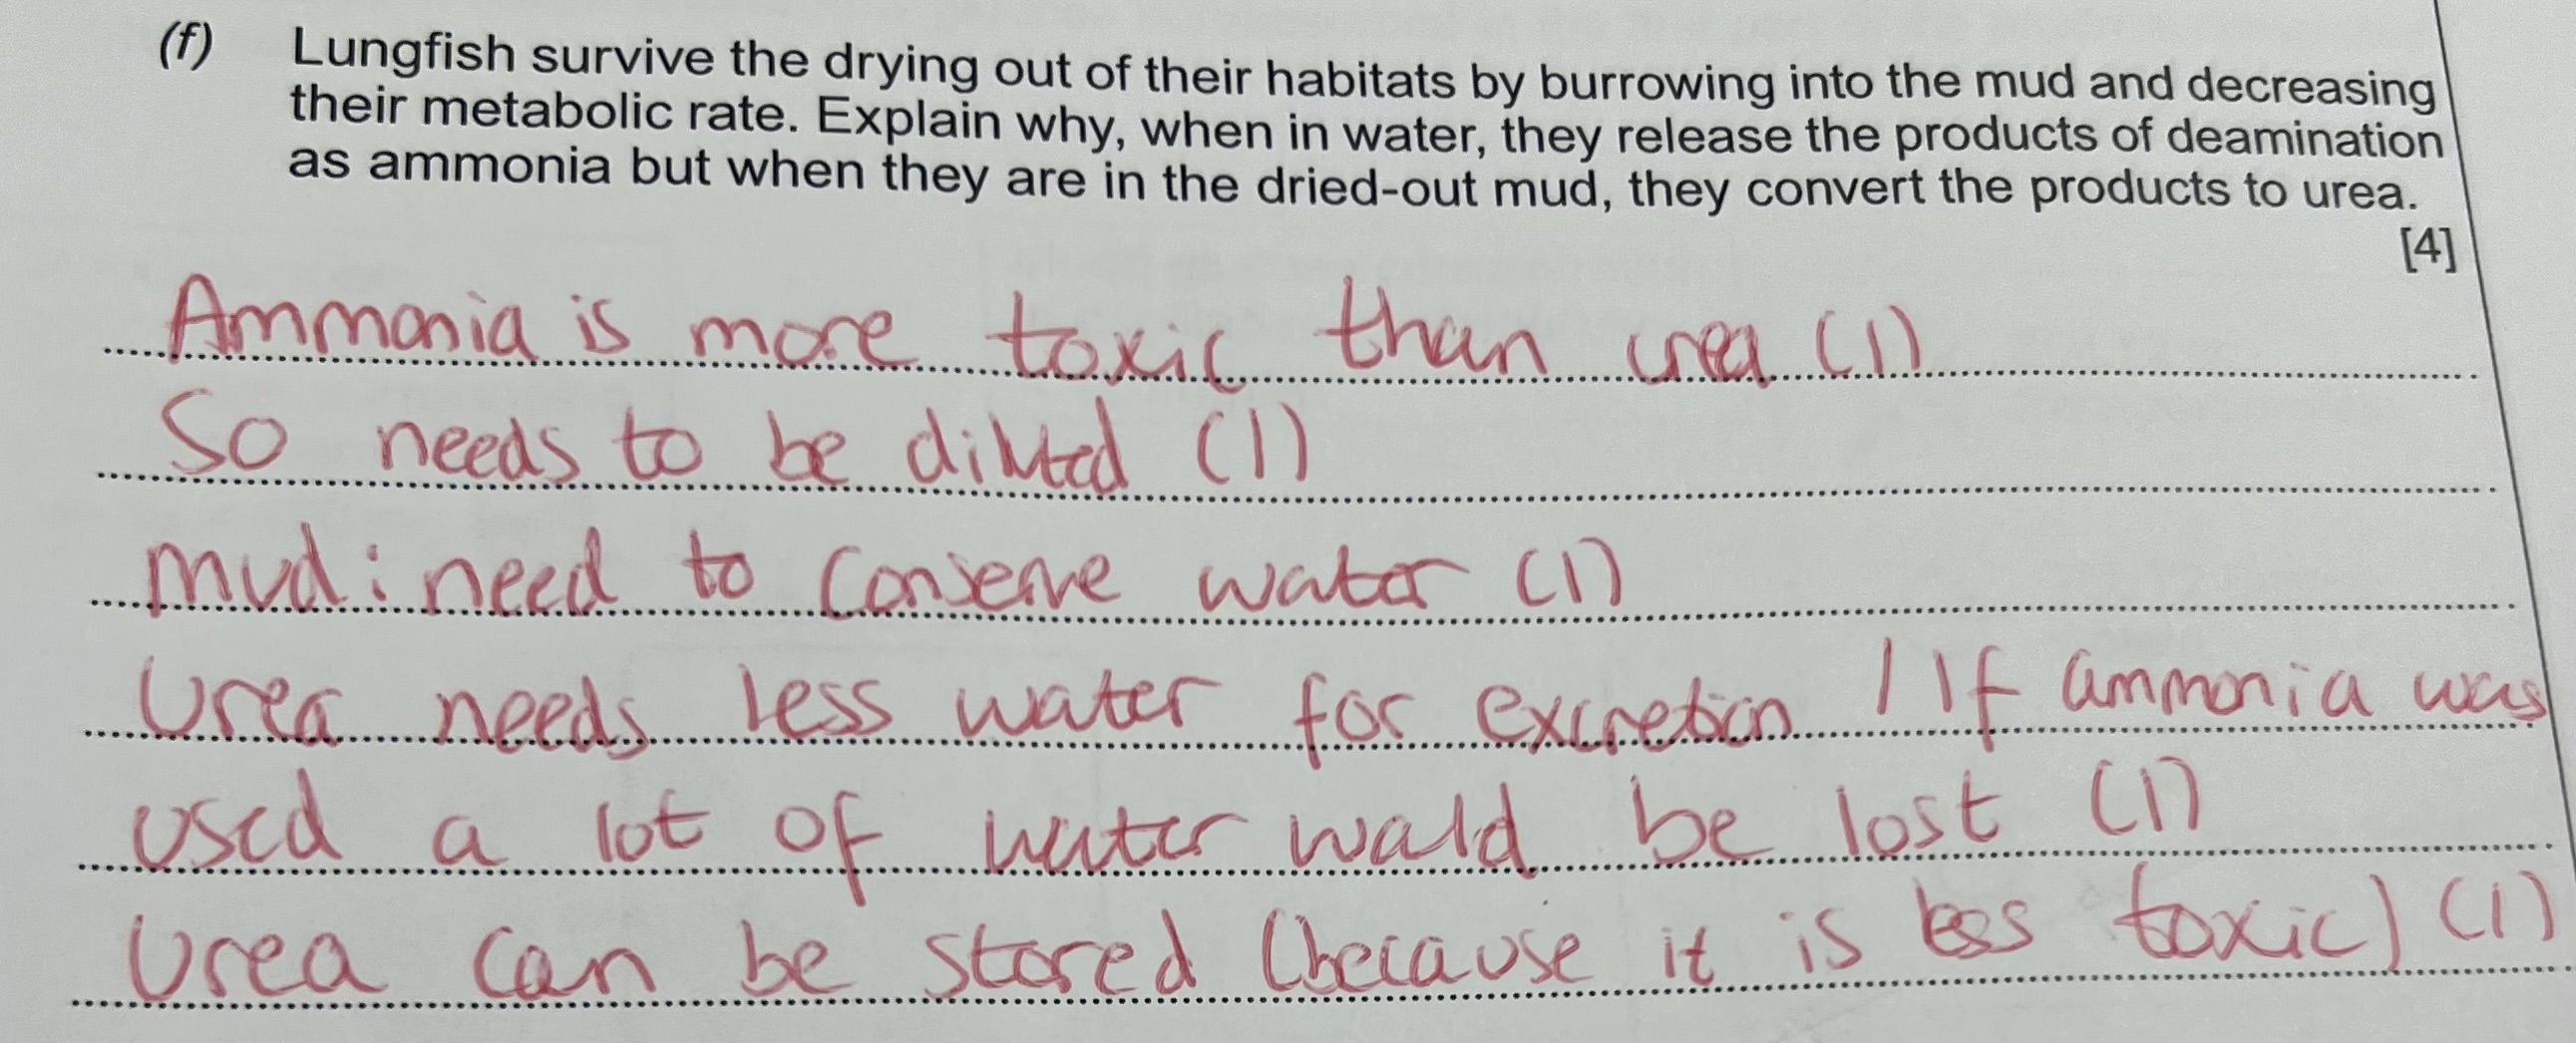 (f) Lungfish survive the drying out of their habitats by burrowing into the mud and decreasing
their metabolic rate. Explain why, when in water, they release the products of deamination
as ammonia but when they are in the dried-out mud, they convert the products to urea.
[4]
Ammonia is more toxic than urea (1)
So needs to be diluted (1)
mud : need to conserve water (1)
Urea needs less water for excretion / If ammonia was
used a lot of water would be lost (1)
Urea can be stored (because it is less toxic) (1)